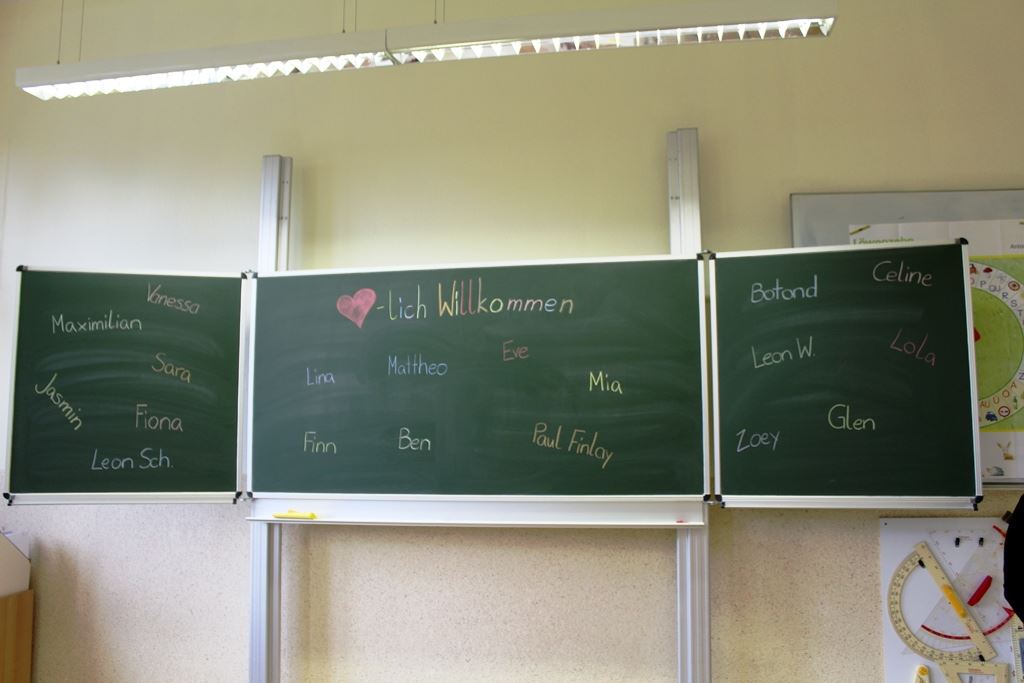 Vanessa
Maximilian
Sara
Jasmin
Fiona
Leon Sch.
-lich Willkommen
Eve
Mattheo
Lina
Mia
Finn
Ben
Paul Finlay
Celine
Botond
Leon W.
Lola
Glen
Zoey
Löwenzahn